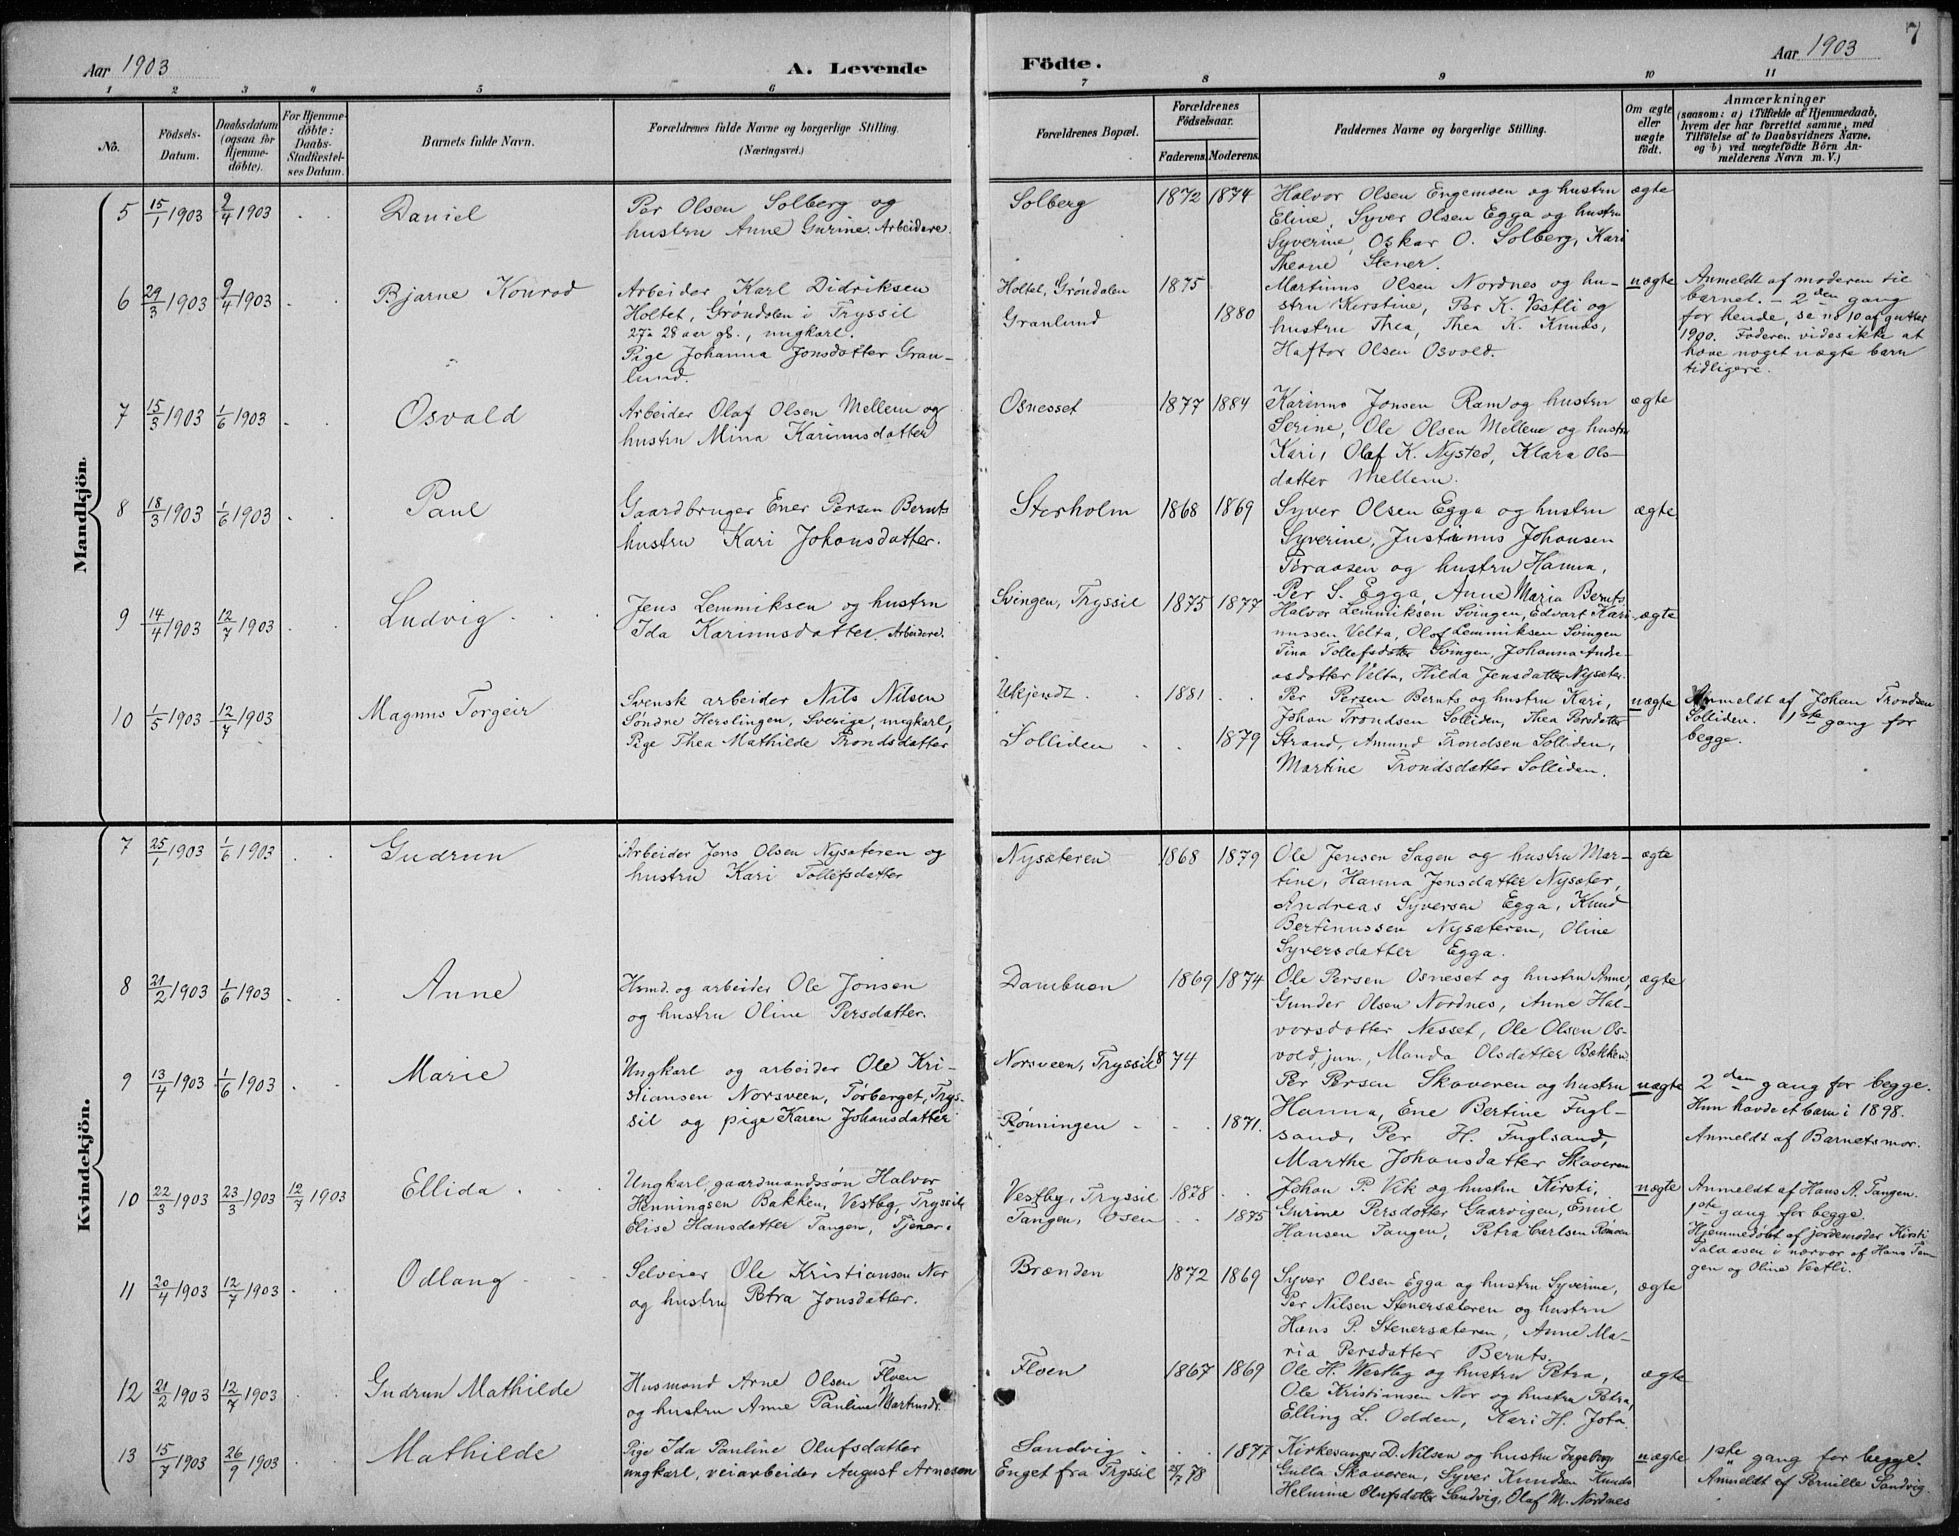 7
Aar 1903
A. Levende
Födte.
Aar 1903
1 2 3 4 5 6 7 8 9 10 11
No.
Födsels-
Datum.
Daabsdatum
(ogsaa for
Hjemme-
döbte).
For Hjemme-
döbte:
Daabs-
Stadfæstel-
ses Datum.
Barnets fulde Navn.
Forældrenes fulde Navne og borgerlige Stilling.
(Næringsvei.)
Forældrenes Bopæl.
Forældrenes
Födselsaar.
Faderens.
Moderens.
Faddernes Navne og borgerlige Stilling.
Om ægte
eller
uægte
födt.
Anmærkninger
(saasom: a) i Tilfælde af Hjemmedaab,
hvem der har forrettet samme, med
Tilföielse af to Daabsvidners Navne,
og b) ved uægtefödte Börn An-
melderens Navn m. V.)
Mandkjön.
5 15/1 1903 9/4 1903 Daniel
Per Olsen Solberg og
hustru Anne Gurine. Arbeidere.
Solberg 1872 1874
Halvor Olsen Engemoen og hustru
Eline, Syver Olsen Egga og hustru
Syverine, Oskar O. Solberg, Kari
Theone Stener.
ægte
6 29/3 1903 9/4 1903 Bjarne Konrad
Arbeider Karl Didriksen
Holtet, Grøndalen i Tryssil
27 a 28 aar gl., ungkarl.
Pige Johanna Jonsdatter Gran-
lund.
Holtet, Grøndalen 1875
Granlund 1880
Martinus Olsen Nordnes og hu-
stru Kerstine, Per K. Vestli og
hustru Thea, Thea K. Knuds,
Haftor Olsen Osvold.
uægte
Anmeldt af moderen til
barnet. – 2den gang
for hende, se no 10 af gutter
1900. Faderen vides ikke at
have noget uægte barn
tidligere.
7 15/3 1903 1/6 1903 Osvald
Arbeider Olaf Olsen Mellem og
hustru Mina Karinusdatter
Osnesset 1877 1884
Karinus Jonsen Ram og hustru
Serine, Ole Olsen Mellem og hustru
Kari, Olaf K. Nysted, Klara Ols-
datter Mellem.
ægte
8 18/3 1903 1/6 1903 Paul
Gaardbruger Ener Persen Bernts
hustru Kari Johansdatter.
Storholm 1868 1869
Syver Olsen Egga og hustru
Syverine, Justinus Johansen
Toraasen og hustru Hanna,
Per S. Egga, Anne Maria Bernts
ægte
9 14/4 1903 12/7 1903 Ludvig
Jens Lemmiksen og hustru
Ida Karinusdatter. Arbeidere.
Svingen, Tryssil 1875 1877
Halvor Lemmiksen Svingen, Edvart Kari-
nussen Velta, Olof Lemmiksen Svingen
Tina Tollefsdatter Svingen, Johanna Andre-
asdatter Velta, Hilda Jensdatter Nysæter.
ægte
10 1/5 1903 12/7 1903 Magnus Torgeir
Svensk arbeider Nils Nilsen
Søndre Herslingen, Sverige, ungkarl,
Pige Thea Mathilde Trondsdatter
Ukjendt 1881
Solliden 1879
Per Persen Bernts og hustru Kari,
Johan Trondsen Solliden, Thea Persdatter
Strand, Amund Trondsen Solliden,
Martine Trondsdatter Solliden.
uægte
Anmeldt af Johan Trondsen
Solliden. 1ste gang for
begge.
Kvindekjön.
7 25/1 1903 1/6 1903 Gudrun
Arbeider Jens Olsen Nysæteren og
hustru Kari Tollefsdatter
Nysæteren 1868 1879
Ole Jensen Sagen og hustru Mar-
tine, Hanna Jensdatter Nysæter,
Andreas Syversen Egga, Knud
Bertinussen Nysæteren, Oline
Syversdatter Egga.
ægte
8 21/2 1903 1/6 1903 Anne
Husmd. og arbeider Ole Jonsen
og hustru Oline Persdatter.
Dambuen 1869 1874
Ole Persen Osneset og hustru Anne,
Gunder Olsen Nordnes, Anne Hal-
vorsdatter Nesset, Ole Olsen Os-
vold, jun., Manda Olsdatter Bakken
ægte
9 13/4 1903 1/6 1903 Marie
Ungkarl og arbeider Ole Kri-
stiansen Norsveen, Torberget, Trys-
sil og pige Karen Johansdatter
Norsveen, Tryssil 1874
Rønningen 1871.
Per Persen Skaveren og hustru
Hanna, Ene Bertine Fugl-
sand, Per H. Fuglsand,
Marthe Johansdatter Skaveren
uægte
2den gang for begge.
Hun havde et barn i 1898.
Anmeldt af Barnets mor.
10 22/3 1903 23/3 1903 12/7 1903 Ellida
Ungkarl, gaardmandssøn Halvor
Henningsen Bakken, Vestby, Tryssil
Elise Hansdatter Tangen, Tjener.
Vestby, Tryssil 1878
Tangen, Osen 1875
Johan P. Vik og hustru Kirsti,
Gurine Persdatter Gaarvigen, Emil
Hansen Tangen, Petra Carlsen Romoen
uægte
Anmeldt af Hans A. Tangen.
1ste gang for begge.
Hjemmedøbt af jordemoder Kirsti
Talaasen i nærvær af Hans Tan-
gen og Oline Vestli.
11 20/4 1903 12/7 1903 Odlaug
Selveier Ole Kristiansen Nor
og hustru Petra Jonsdatter.
Brænden 1872 1869
Syver Olsen Egga og hustru Syverine,
Per Nilsen Stenersæteren og hustru
Hans P. Stenersæteren, Anne Ma-
ria Persdatter Bernts.
ægte
12 21/2 1903 12/7 1903 Gudrun Mathilde
Husmand Arne Olsen Floen
og hustru Anne Pauline Martinsdr.
Floen 1867 1869
Ole H. Westby og hustru Petra,
Ole Kristiansen Nor og hustru Petra,
Elling L. Odden, Kari H. Jota.
ægte
13 15/7 1903 26/9 1903 Mathilde
Pige Ida Pauline Olufsdatter
ungkarl, veiarbeider August Arnesen
Sandvig 1877
Enget fra Tryssil 25/7 78
Kirkesanger D. Nilsen og hustru Ingeborg
Gulla Skaveren, Syver Knudsen Knuds
Helmine Olufsdatter Sandvig, Olaf M. Nordnes
uægte
1ste gang for begge.
Anmeldt af Pernille Sandvig.